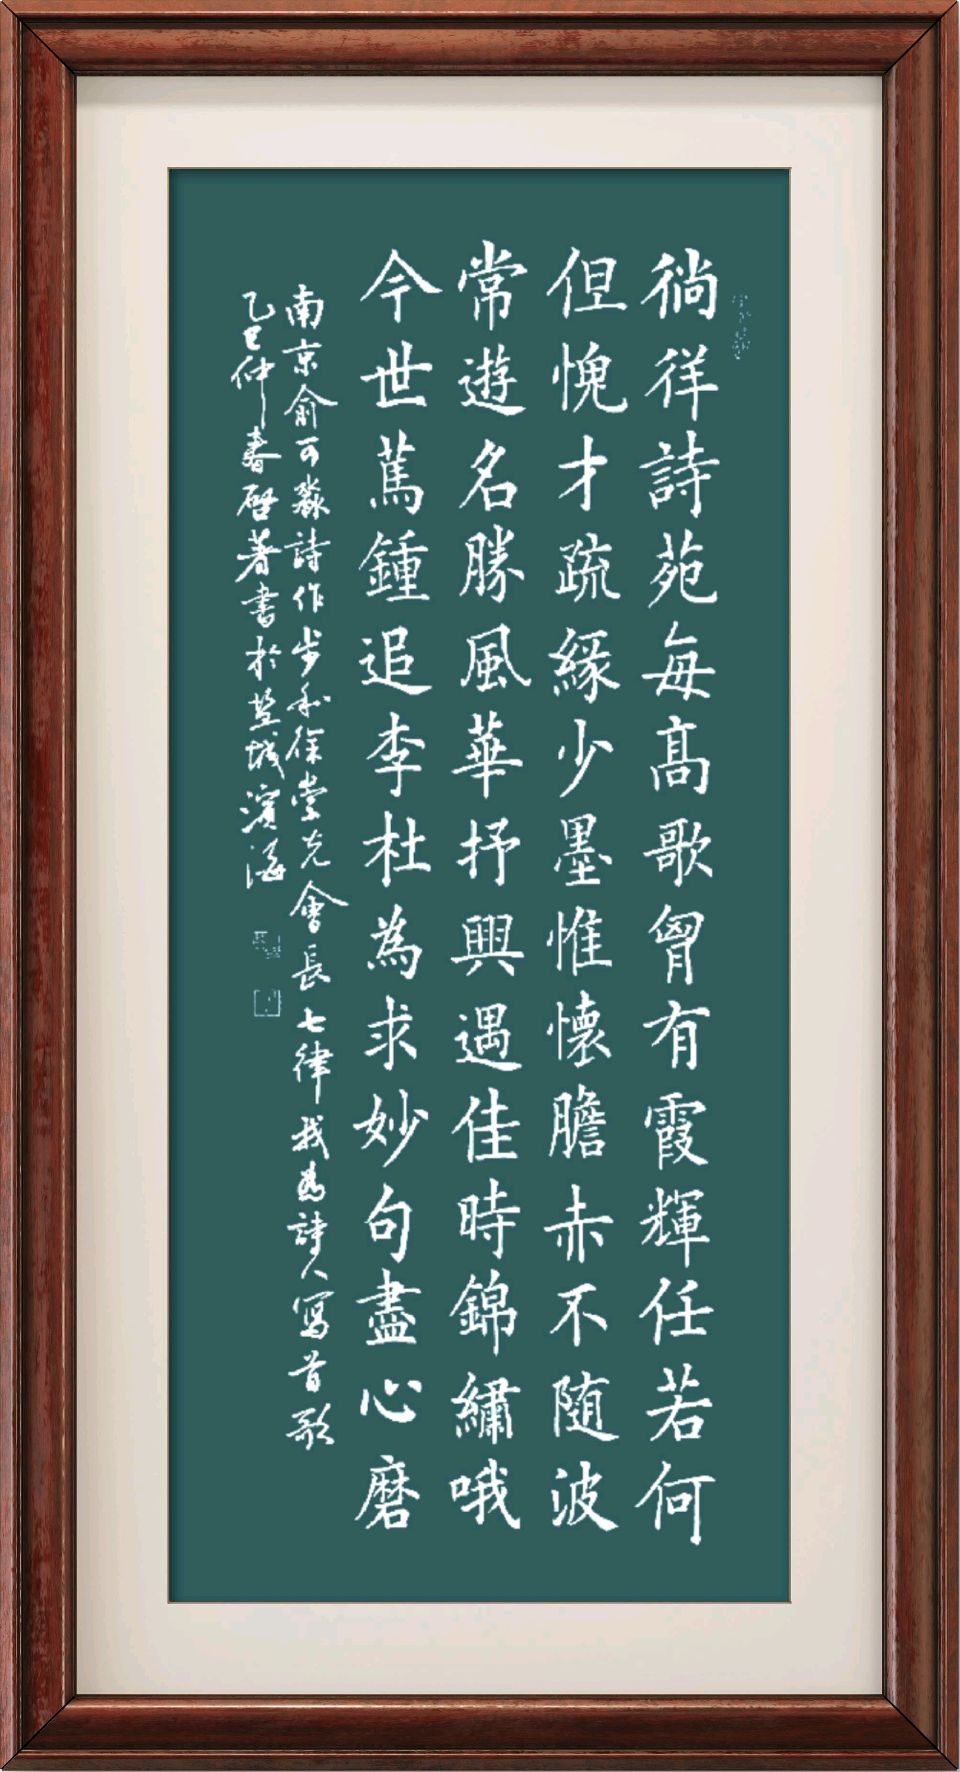 徜徉詩苑每高歌曾有霞輝任若何
但愧才疏緣少墨惟懷膽赤不随波
常遊名勝風華抒興遇佳時錦繡哦
今世篤鍾追李杜為求妙句盡心磨
南京俞可淼詩作步和徐崇先會長七律我為詩人寫首歌
乙巳仲春啓著書於鹽城濱海